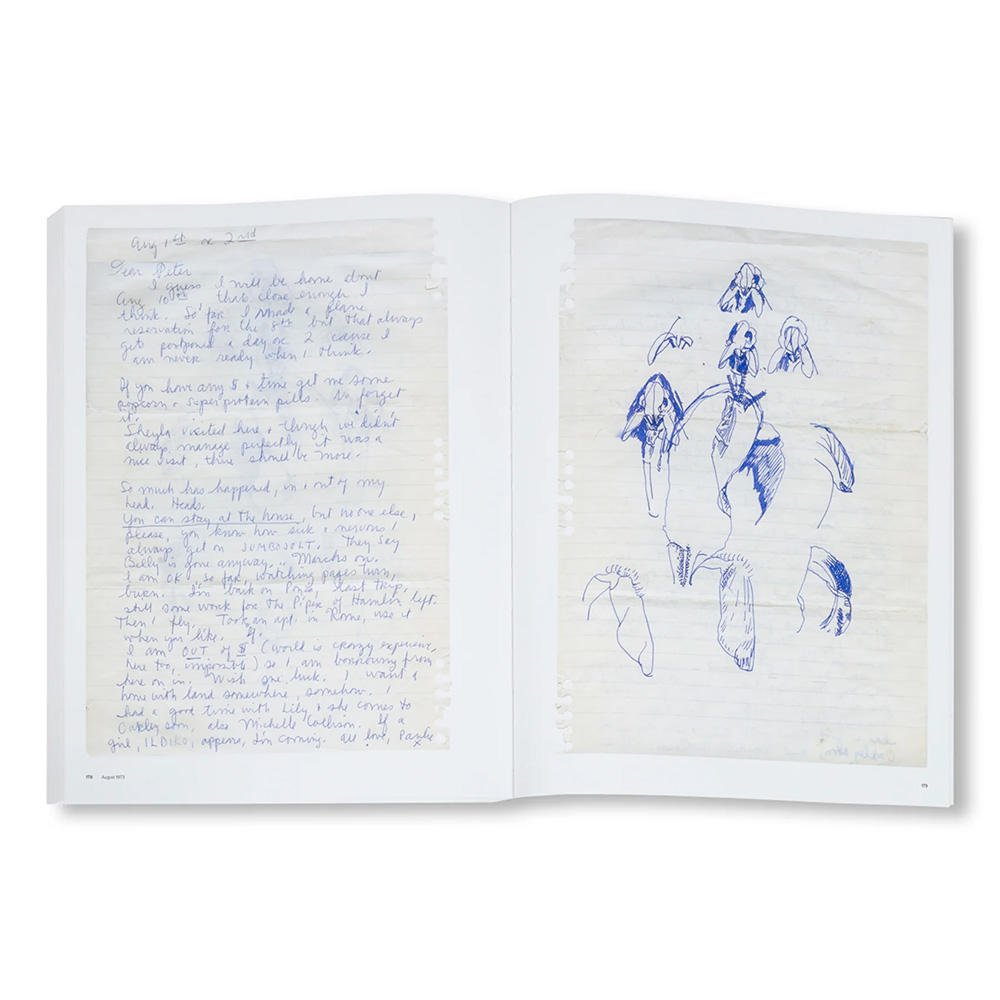 Aug 1st or 2nd
Dear Peter
I guess I will be home abut
Aug 10th thats close enough I
think. So far I made a plane
reservation for the 8th but that always
gets postponed a day or 2 cause I
am never ready when I think.
If you have any $ & time get me some
popcorn & super protein pills. No forget
it.
Sheyla visited here & though we didn't
always manage perfectly it was a
nice visit, there should be more.
So much has happened, in & out of my
head. Heads.
You can stay at the house, but no one else,
please, you know how sick & nervous I
always get on JUMBOJOLT. They say
Billy is gone anyway... Marchs on.
I am OK, so far, watching pages turn,
burn. I'm back on Ponza, last trip,
still some work for the Piper of Hamlin left.
Then I fly. Took an apt. in Rome, use it
when you like. If.
I am OUT of $ (world is crazy expensive,
here too, impossible) so I am borrowing from
here on in. Wish me luck. I want a
home with land somewhere, somehow. I
had a good time with Lily & she comes to
Oakley soon, also Michelle Collison. If a
girl, ILDIKO, appears, I'm coming. All love, Paul
178 August 1973
179